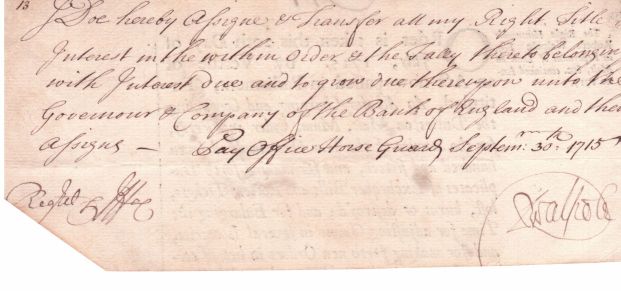 13
I Doe hereby Assigne & Transfer all my Right Title
Interest in the within Order & the Tally thereto belongin
with Interest due and to grow due thereupon unto the
Governour & Company of the Bank of England and their
Assigns — Pay Office Horse Guards Septem: 30th. 1715
RWalpole